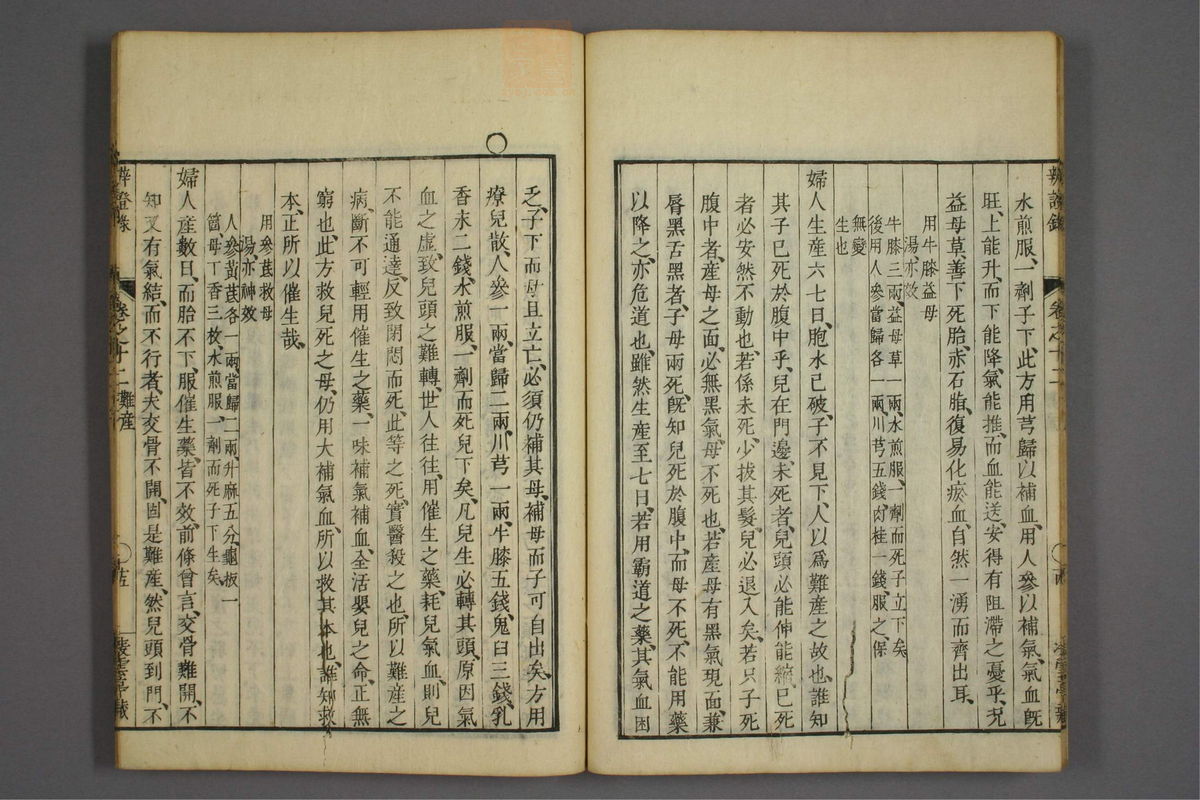 辨證錄
卷之十二
水煎服、一劑子下、此方用芎歸以補血、用人參以補氣、氣血旣
旺、上能升、而下能降、氣能推、而血能送、安得有阻滯之憂乎、况
益母草、善下死胎、赤石脂、復易化瘀血、自然一湧而齊出耳、
用牛膝益母
湯亦效
牛膝三兩、益母草一兩、水煎服、一劑而死子立下矣、
後用人參當歸各一兩、川芎五錢、肉桂一錢、服之、保
無變
生也
婦人生産六七日、胞水已破、子不見下、人以爲難産之故也、誰知
其子已死於腹中乎、兒在門邊、未死者、兒頭必能伸能縮、已死
者必安然不動也、若係未死、少拔其髮、兒必退入矣、若只子死
腹中者、産母之面、必無黑氣、母不死也、若産母有黑氣現面、兼
脣黑舌黑者、子母兩死、旣知兒死於腹中、而母不死、不能用藥
以降之、亦危道也、雖然生産至七日、若用霸道之藥、其氣血困
乏、子下而母且立亡、必須仍補其母、補母而子可自出矣、方用
療兒散、人參一兩、當歸二兩、川芎一兩、牛膝五錢、鬼臼三錢、乳
香末二錢、水煎服、一劑而死兒下矣、凡兒生必轉其頭、原因氣
血之虛、致兒頭之難轉、世人往往、用催生之藥、耗兒氣血、則兒
不能通達、反致閉悶而死、此等之死、實醫殺之也、所以難産之
病、斷不可輕用催生之藥、一味補氣補血、全活嬰兒之命、正無
窮也、此方救兒死之母、仍用大補氣血、所以救其本也、誰知救
本、正所以催生哉、
用參芪救母
湯、亦神效
人參黃芪各一兩、當歸二兩、升麻五分、龜板一
箇、母丁香三枚、水煎服、一劑而死子下生矣、
婦人産數日、而胎不下、服催生藥、皆不效、前條曾言、交骨難開、不
知又有氣結、而不行者、夫交骨不開、固是難産、然兒頭到門、不
辨證錄
卷之十二 難産
十五